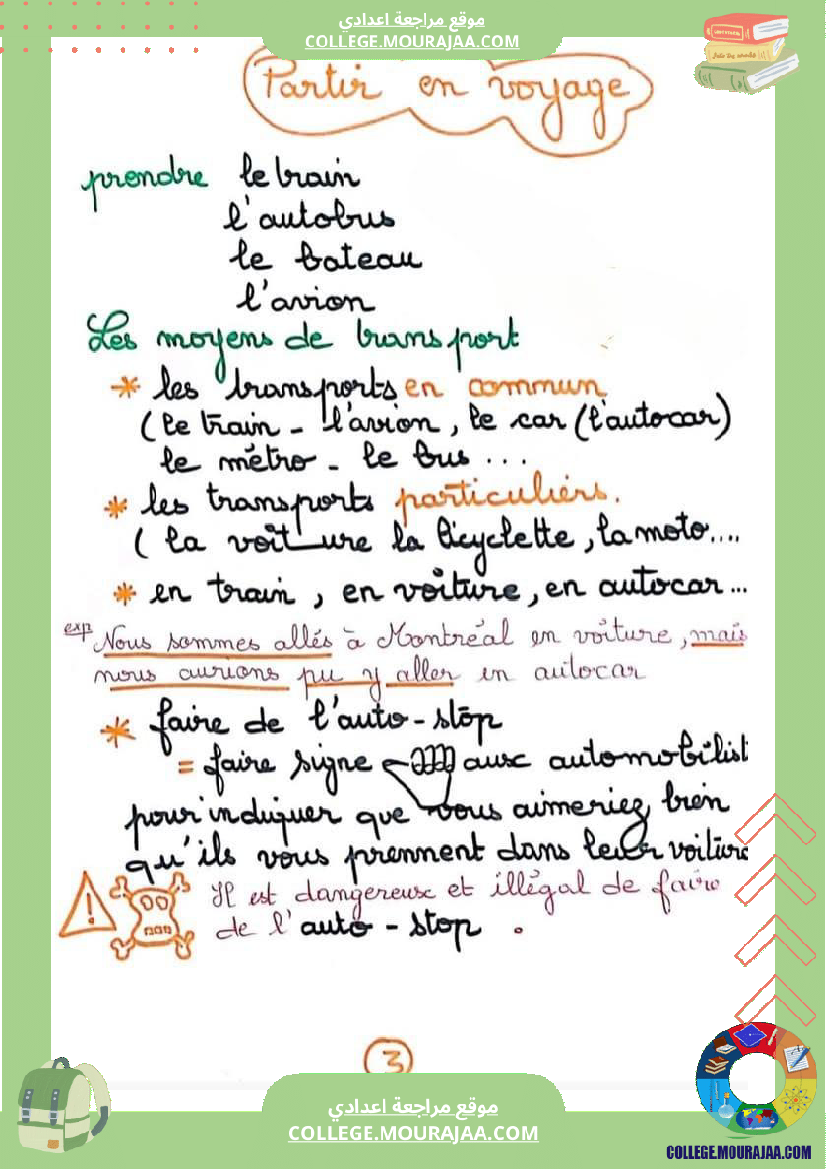 موقع مراجعة اعدادي
COLLEGE.MOURAJAA.COM
Partir en voyage
prendre le train
l'autobus
le bateau
l'avion
Les moyens de transport
* les transports en commun
(le train - l'avion, le car (l'autocar)
le métro - le bus ...
* les transports particuliers.
( la voiture la bicyclette, la moto....
* en train, en voiture, en autocar...
exp Nous sommes allés à Montréal en voiture, mais
nous aurions pu y aller en autocar
* faire de l'auto-stop
= faire signe aux automobilist
pour indiquer que vous aimeriez bien
qu'ils vous prennent dans leur voiture
! Il est dangereux et illégal de faire
de l'auto-stop.
3
موقع مراجعة اعدادي
COLLEGE.MOURAJAA.COM
COLLEGE.MOURAJAA.COM